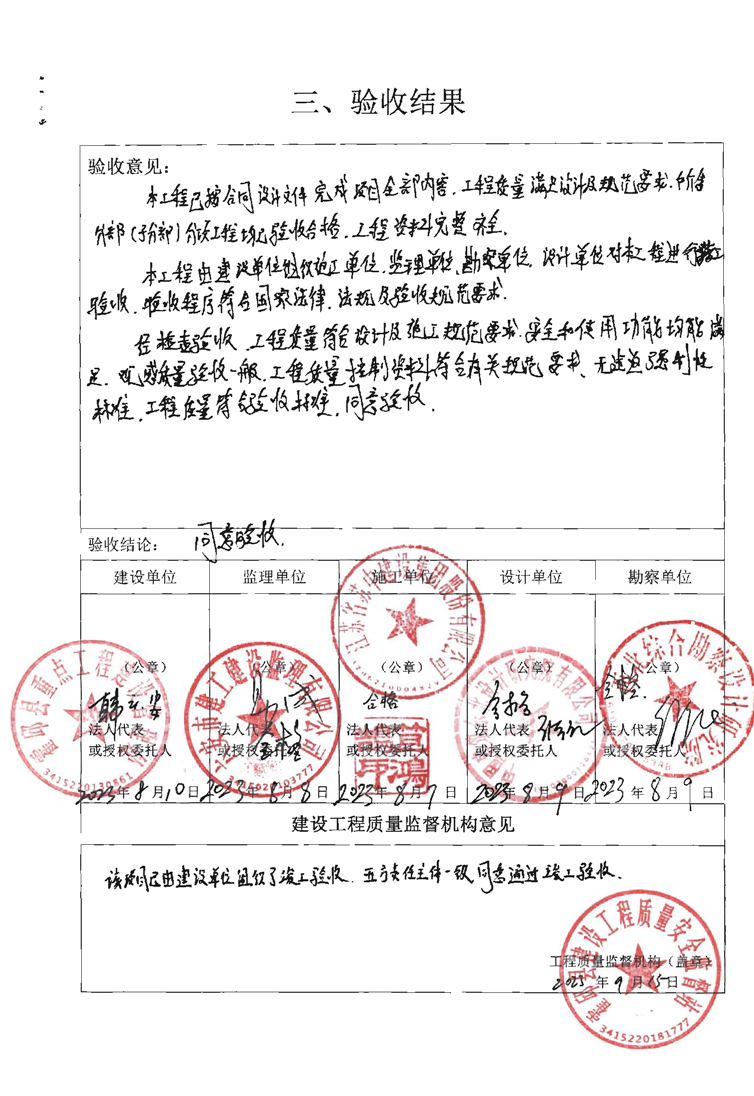 三、验收结果
验收意见：
本工程已按合同设计文件完成项目全部内容，工程质量满足设计及规范要求，所含
分部（子分部）分项工程均已验收合格，工程资料完整齐全。
本工程由建设单位组织施工单位、监理单位、勘察单位、设计单位对本工程进行竣工
验收，验收程序符合国家法律、法规及验收规范要求。
经检查验收，工程质量符合设计及施工规范要求，安全和使用功能均能满
足，观感质量验收一般，工程质量控制资料符合有关规范要求，无违道强制性
标准，工程质量符合验收标准，同意验收。
验收结论： 同意验收。
建设单位 监理单位 施工单位 设计单位 勘察单位
江苏省苏中建设集团股份有限公司
霍邱县重点工程建设管理
六安市建工建设监理有限公司
综合勘察设计研究院
（公章） （公章） （公章） （公章） （公章）
合格 合格 合格
法人代表 法人代表 法人代表 法人代表 法人代表
或授权委托人 或授权委托人 或授权委托人 或授权委托人 或授权委托人
3415220130861
2023年8月10日 2023年8月8日 2023年8月7日 2023年8月9日 2023年8月9日
建设工程质量监督机构意见
该项目已由建设单位组织了竣工验收，五方责任主体一致同意通过竣工验收。
霍邱县建设工程质量安全监督站
工程质量监督机构（盖章）
2023年9月15日
3415220181777